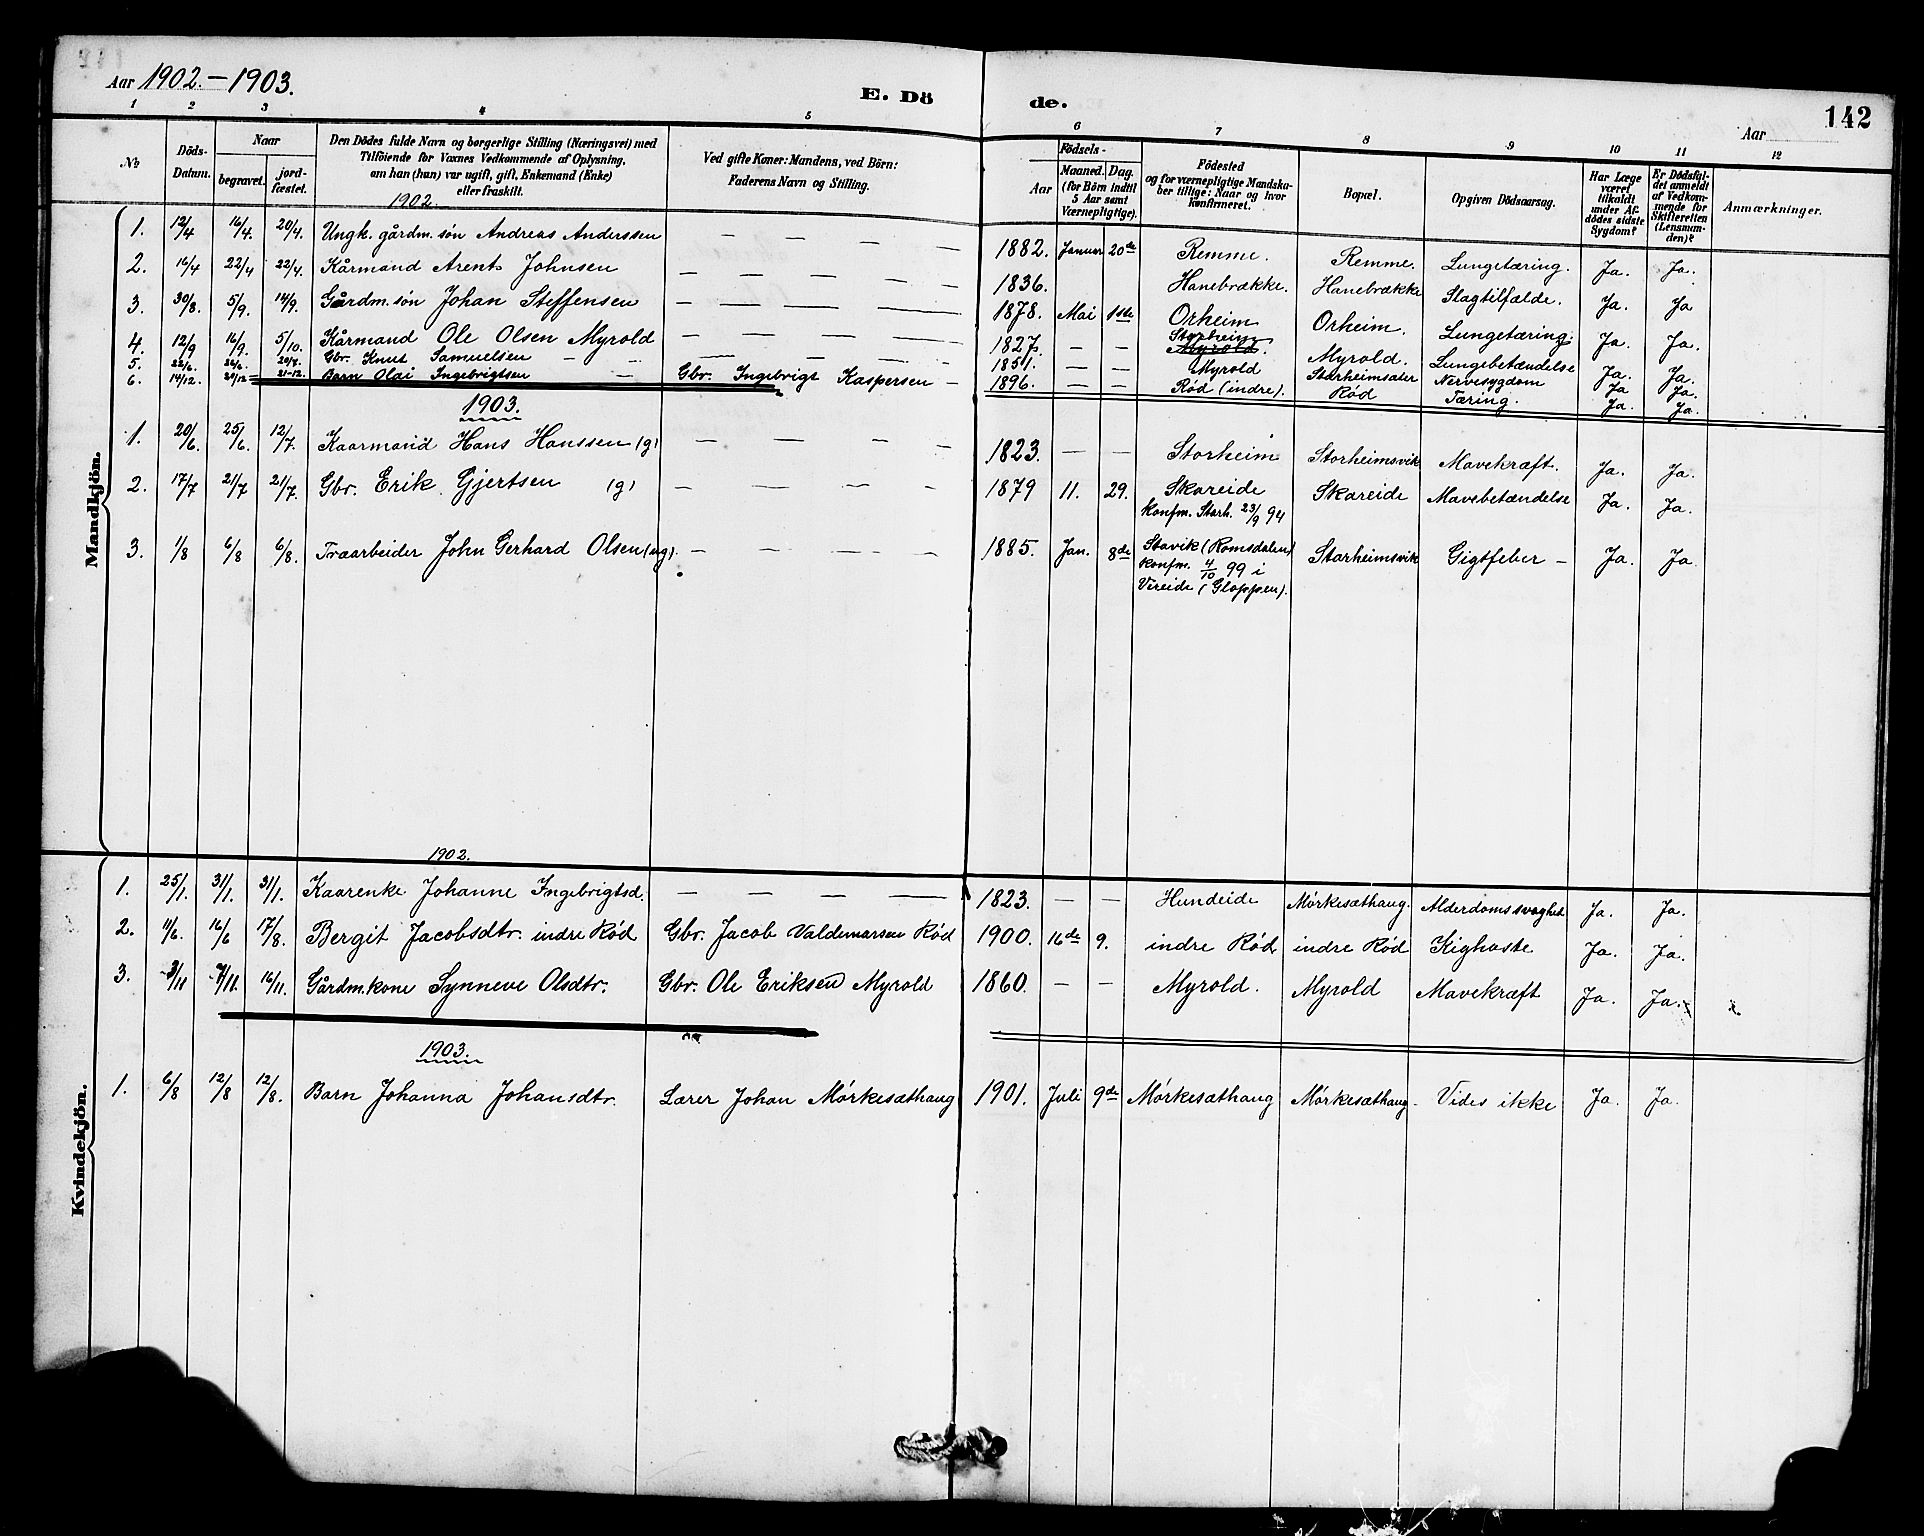 Aar 1902.-1903.
E. Dö de.
142
Aar
1 2 3 4 5 6 7 8 9 10 11 12
No
Döds-Datum.
Naar
begravet.
jordfæstet.
Den Dödes fulde Navn og borgerlige Stilling (Næringsvei) med
Tilföiende for Voxnes Vedkommende af Oplysning,
om han (hun) var ugift, gift, Enkemand (Enke)
eller fraskilt.
Ved gifte Koner: Mandens, ved Börn:
Faderens Navn og Stilling.
Födsels-
Aar
Maaned. Dag.
(for Börn indtil
5 Aar samt
Værnepligtige).
Födested
og for værnepligtige Mandska-
ber tillige: Naar og hvor
konfirmeret.
Bopæl.
Opgiven Dödsaarsag.
Har Læge
været
tilkaldt
under Af-
dödes sidste
Sygdom?
Er Dödsfal-
det anmeldt
af Vedkom-
mende for
Skifteretten
(Lensman-
den)?
Anmærkninger.
Mandkjön.
1902.
1. 12/4 16/4. 20/4. Ungk. gårdm. søn Andreas Anderssen — — — — 1882. Januar 20de Remme. Remme. Lungetæring. Ja. Ja.
2. 16/4 22/4 22/4. Kårmand Arent Johnsen — — — — — 1836. Hanebrække. Hanebrække Slagtilfælde. Ja. Ja
3. 30/8. 5/9. 14/9. Gårdm. søn Johan Steffensen — — — — 1878. Mai 1ste Orheim Orheim. Lungetæring. Ja. Ja.
4. 12/9 16/9. 5/10. Kårmand Ole Olsen Myrold — — — — 1827. — — Storheim Myrold. Myrold. Lungebetændelse Ja. Ja.
5. 22/6. 26/6. 20/7. Gbr. Knut Samuelsen — — — — 1851. — — Myrold Starheimsæter Nervesygdom Ja Ja.
6. 14/12. 20/12 21-12. Barn Olai Ingebrigtsen — Gbr. Ingebrigt Kaspersen — 1896. — — Rød (indre). Rød Tæring. Ja. Ja.
1903.
1. 20/6. 25/6. 12/7. Kaarmand Hans Hanssen (g) — — — — 1823. — — Storheim Storheimsvik Mavekræft. Ja. Ja.
2. 17/7 21/7 21/7. Gbr. Erik Gjertsen (g) — — — — 1879 11. 29. Skareide Skareide Mavebetændelse Ja. Ja.
konfm. Starh. 23/9 94
3. 1/8 6/8 6/8. Træarbeider John Gerhard Olsen (ug). — — — — 1885. Jan. 8de Stavik (Romsdalen) Starheimsvik Gigtfeber — Ja. Ja
konfm. 4/10 99 i
Vereide (Gloppen).
Kvindekjön.
1902.
1. 25/1. 31/1. 31/1. Kaarenke Johanne Ingebrigtsd. — — — — 1823. — — Hundeide Mørkesæthaug. Alderdomssvaghet Ja. Ja.
2. 11/6. 16/6 17/8. Bergit Jacobsdtr. indre Rød Gbr. Jacob Valdemarsen Rød 1900. 16de 9. indre Rød indre Rød Kighoste Ja. Ja.
3. 3/11 7/11. 16/11. Gårdm.kone Synneve Olsdtr. Gbr. Ole Eriksen Myrold 1860. — — Myrold. Myrold Mavekræft Ja. Ja.
1903.
1. 6/8 12/8 12/8. Barn Johanna Johansdtr. Lærer Johan Mørkesæthaug 1901. Juli 9de Mørkesæthaug Mørkesæthaug- Vides ikke Ja. Ja.